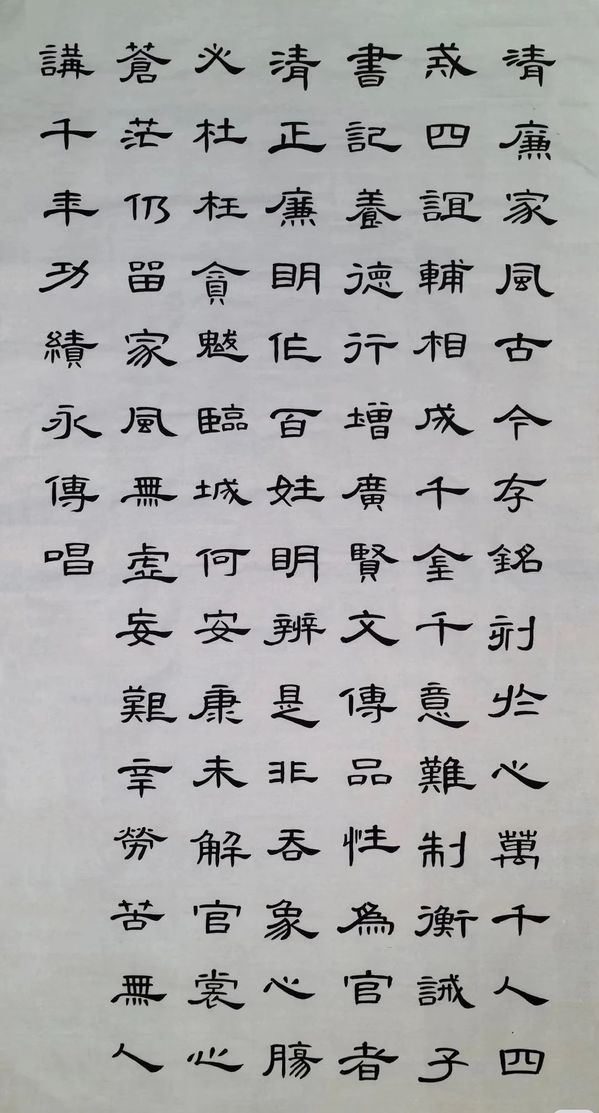 清廉家風古今存銘刻於心萬千人四
戒四誼輔相成千金千意難制衡誡子
書記養德行增廣賢文傳品性為官者
清正廉明作百姓明辨是非吞象心腸
必杜枉貪魃臨城何安康未解官裳心
蒼茫仍留家風無虛妄艱辛勞苦無人
講千年功績永傳唱